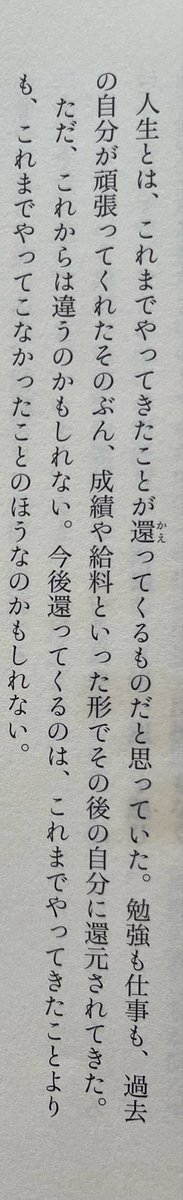 人生とは、これまでやってきたことが還ってくるものだと思っていた。勉強も仕事も、過去
の自分が頑張ってくれたそのぶん、成績や給料といった形でその後の自分に還元されてきた。
ただ、これからは違うのかもしれない。今後還ってくるのは、これまでやってきたことより
も、これまでやってこなかったことのほうなのかもしれない。